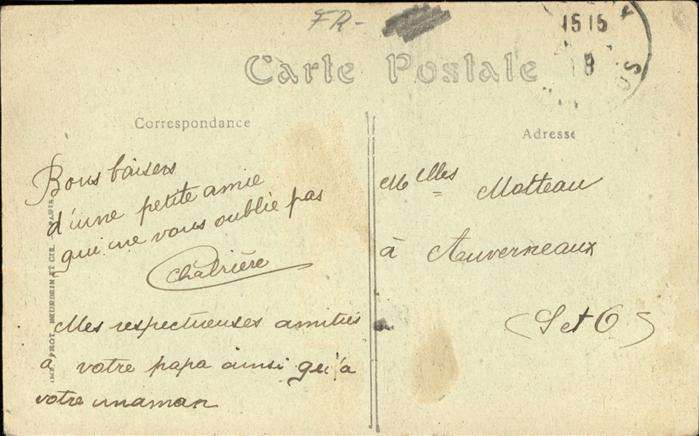 FR-
Carte Postale
15 15
8
Correspondance
Adresse
Bons baisers
d'une petite amie
qui ne vous oublie pas
Chabrière
Mes respectueuses amitiés
a votre papa ainsi qu'a
votre maman
Melles Motteau
à Auverneaux
(S et O)